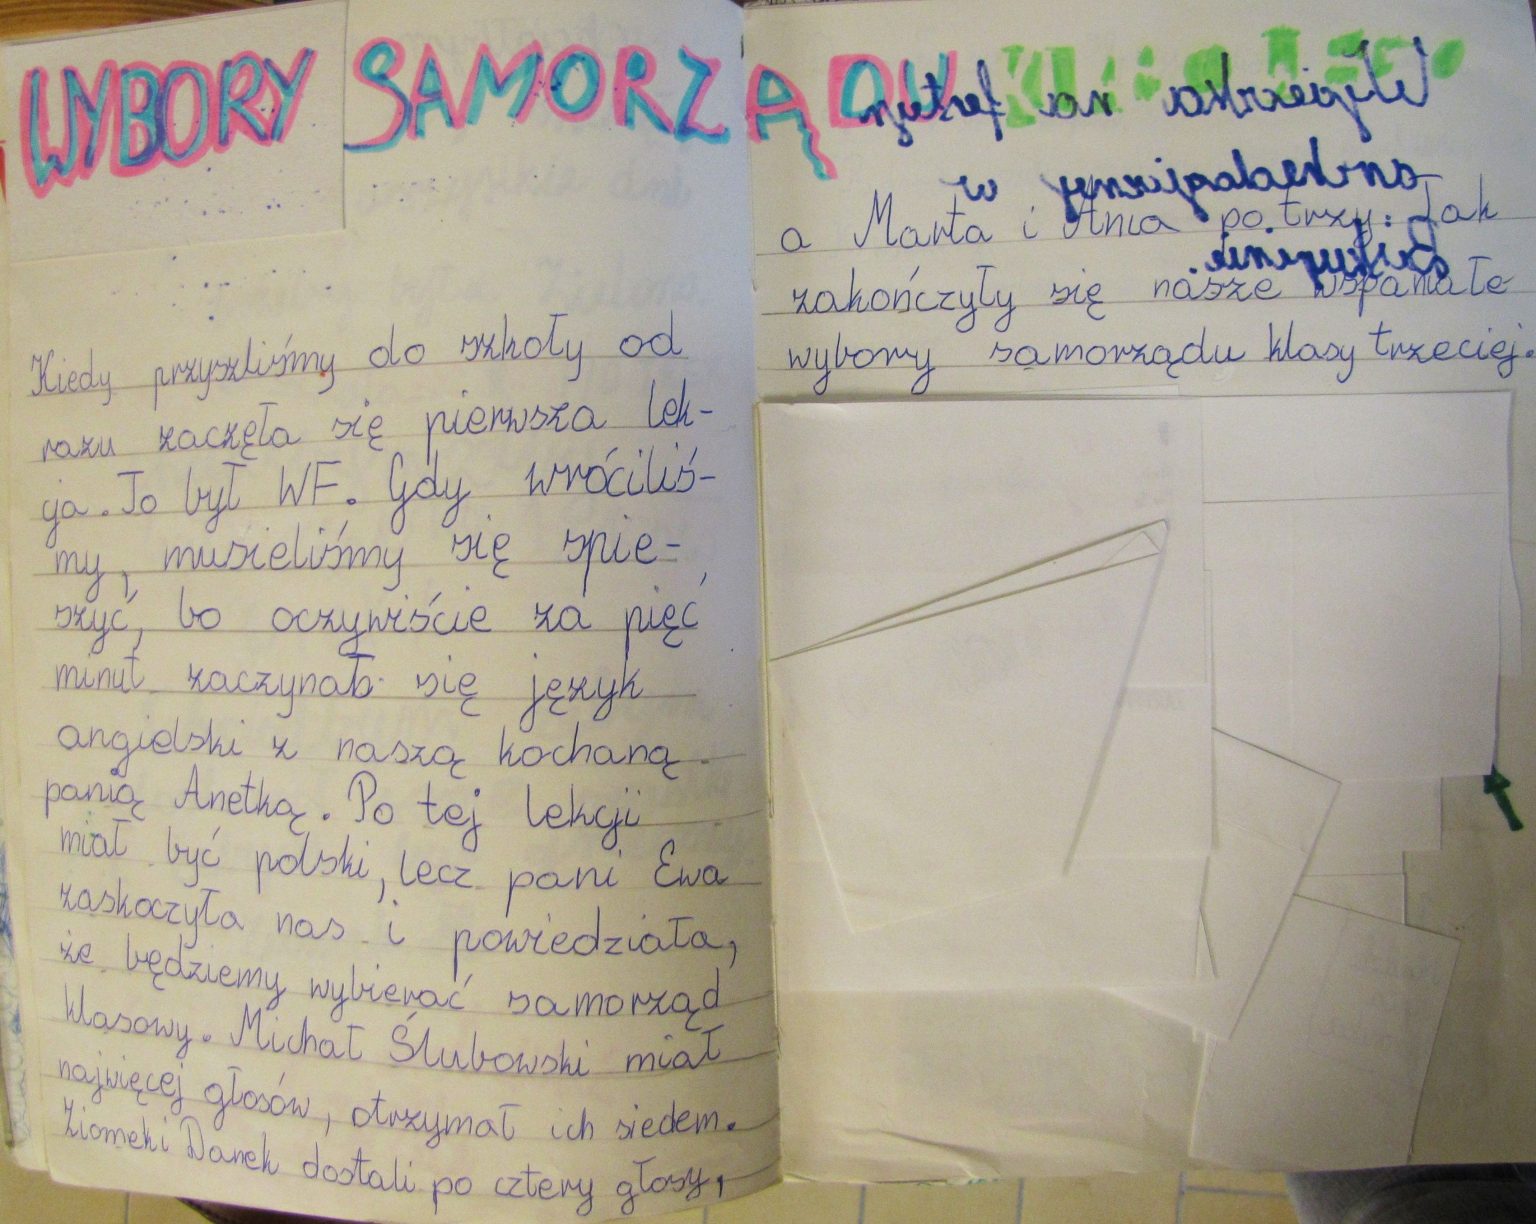 WYBORY SAMORZĄDU
Kiedy przyszliśmy do szkoły od
razu zaczęła się pierwsza lek-
cja. To był WF. Gdy wróciliś-
my, musieliśmy się spie-
szyć, bo oczywiście za pięć
minut zaczynał się język
angielski z naszą kochaną
panią Anetką. Po tej lekcji
miał być polski, lecz pani Ewa
zaskoczyła nas i powiedziała,
że będziemy wybierać samorząd
klasowy. Michał Ślubowski miał
najwięcej głosów, otrzymał ich siedem.
Ziomek i Darek dostali po cztery głosy,
a Marta i Ania po trzy. Tak
zakończyły się nasze wspaniałe
wybory samorządu klasy trzeciej.
Wycieczka na festyn
archeologiczny w
Biskupinie